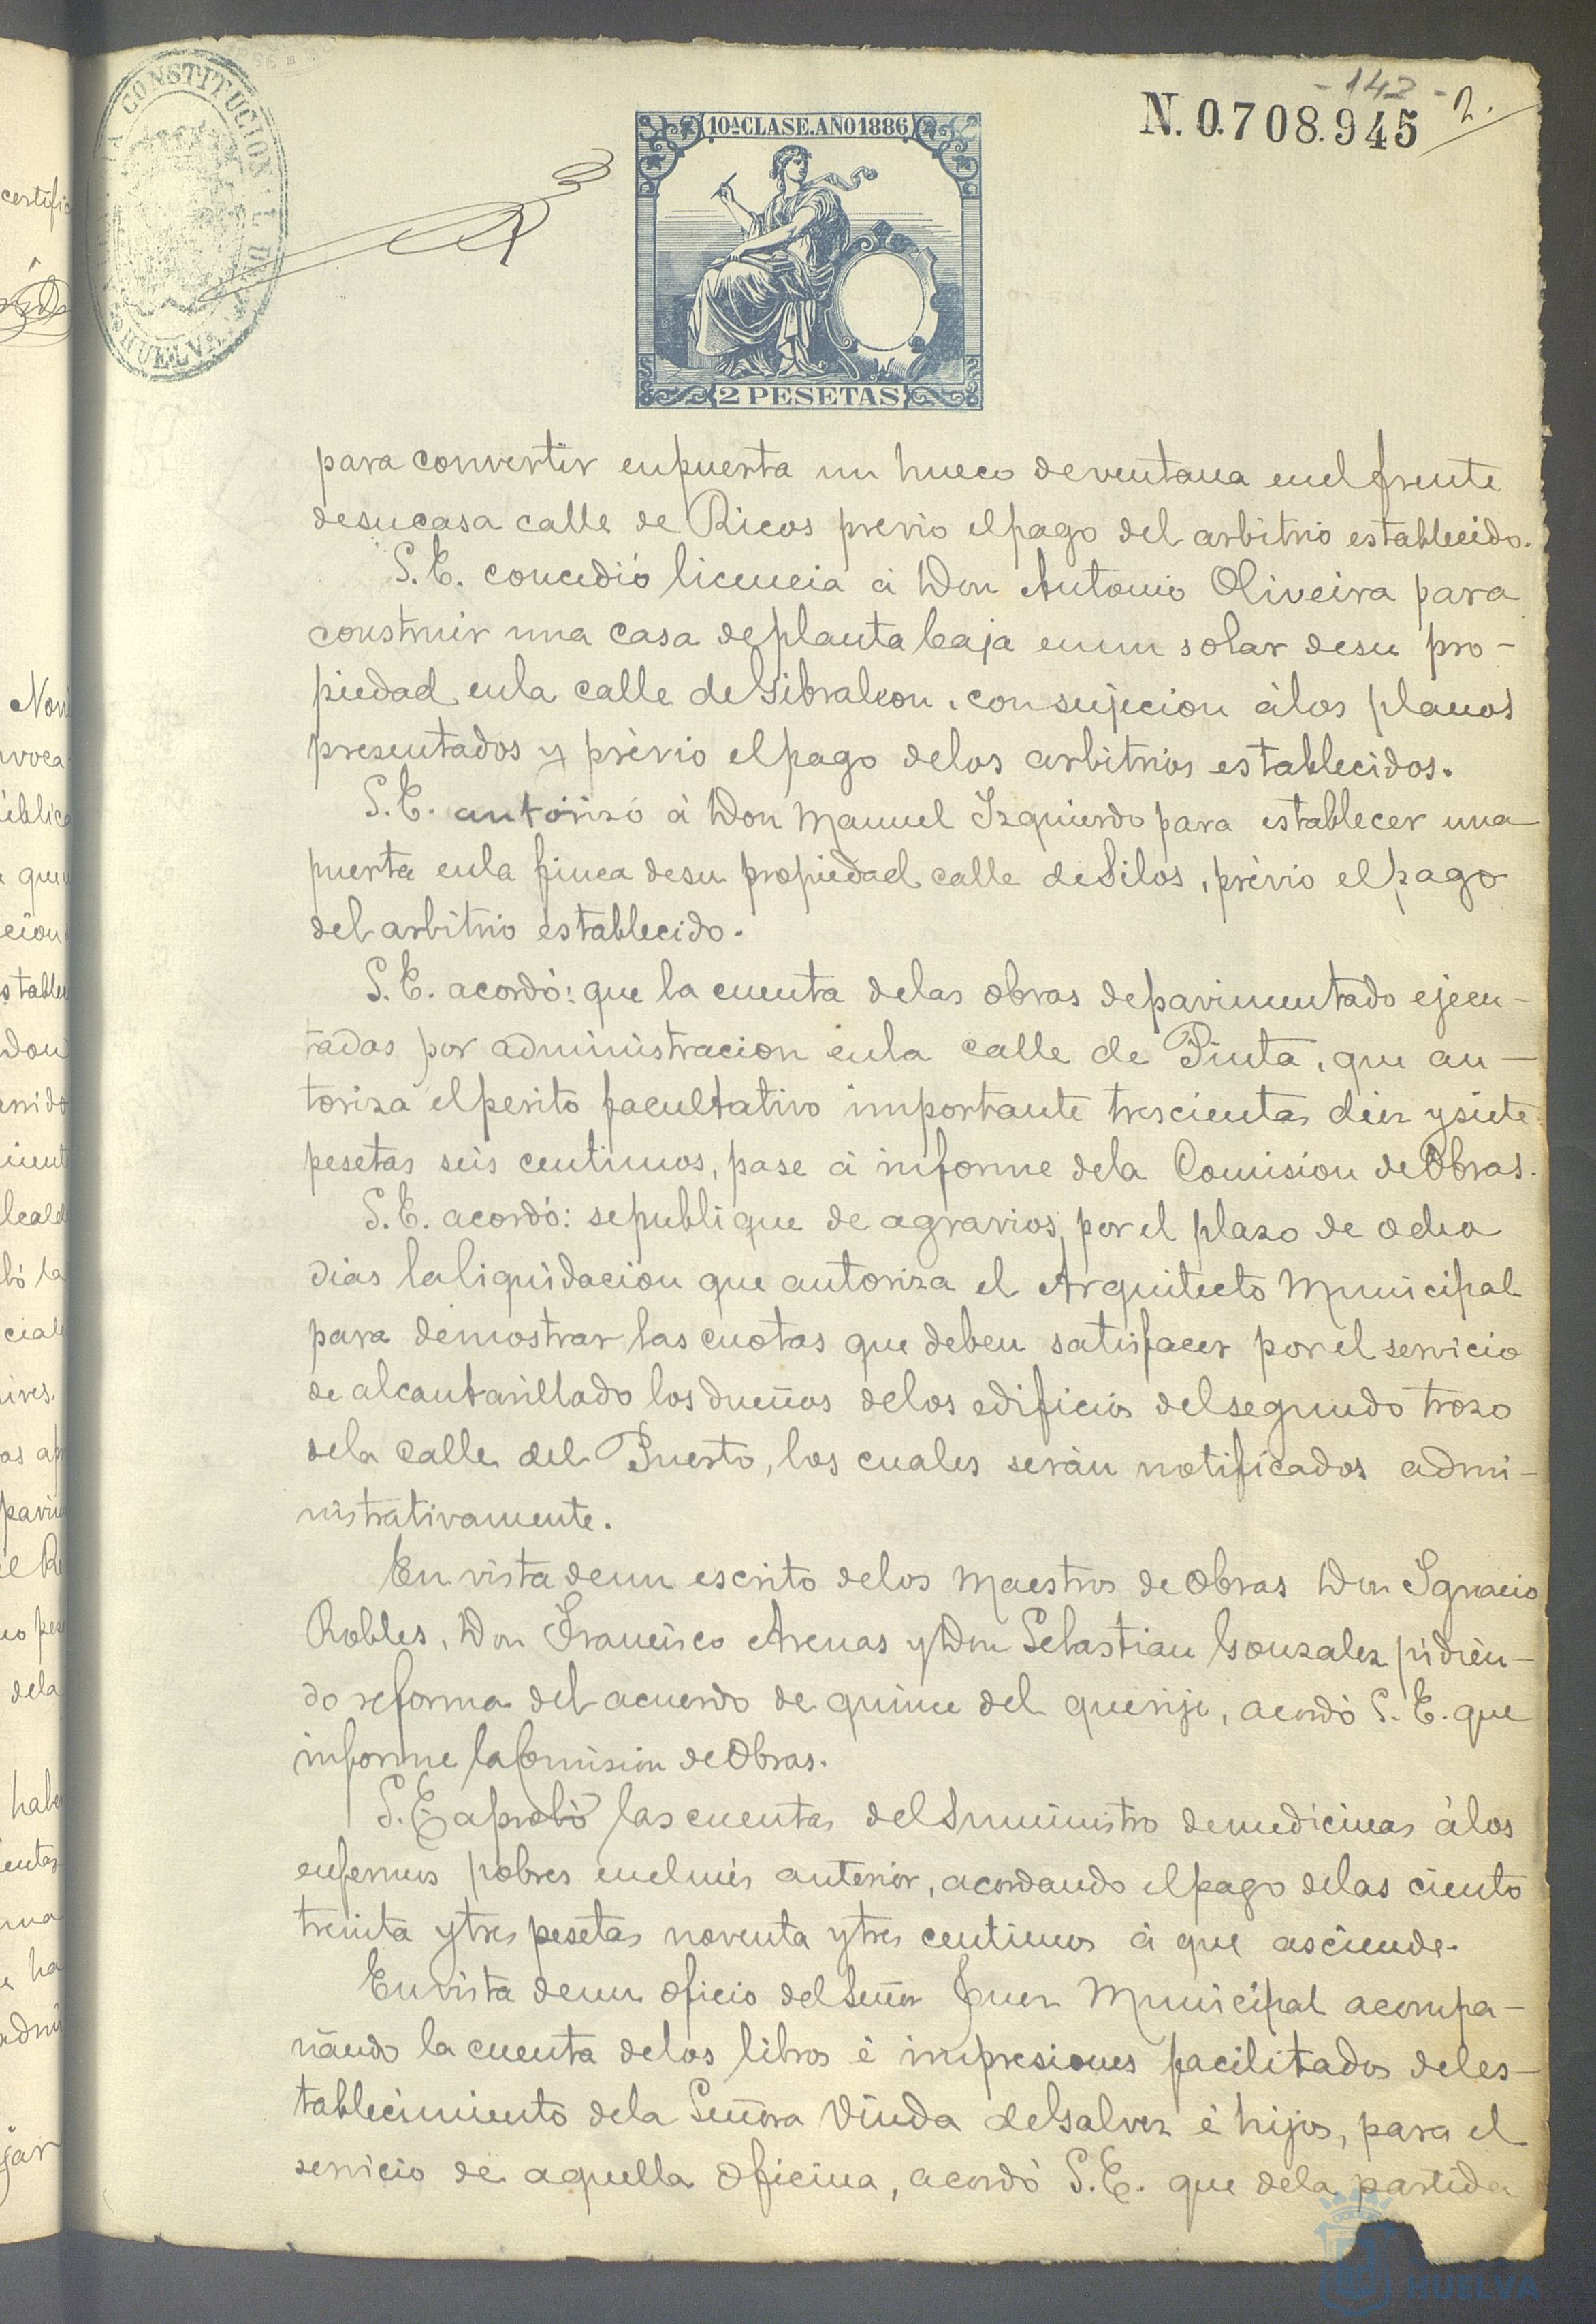 - 142 -
N. 0.708.945
2.
CONSTITUCION
HUELVA
10ª CLASE. AÑO 1886
2 PESETAS
para convertir en puerta un hueco de ventana en el frente
de su casa calle de Ricos prévio el pago del arbitrio establecido.
S. E. concedió licencia á Don Antonio Oliveira para
construir una casa de planta baja en un solar de su pro-
piedad en la calle de Gibraleon, con sujecion á los planos
presentados y prévio el pago de los arbitrios establecidos.
S. E. autorizó á Don Manuel Izquierdo para establecer una
puerta en la finca de su propiedad calle de Silos, prévio el pago
del arbitrio establecido.
S. E. acordó: que la cuenta de las obras de pavimentado ejecu-
tadas por administracion en la calle de Pinta, que au-
toriza el perito facultativo importante trescientas diez y siete
pesetas seis centimos, pase á informe de la Comision de Obras.
S. E. acordó: se publique de agravios, por el plazo de ocho
dias la liquidacion que autoriza el Arquitecto Municipal
para demostrar las cuotas que deben satisfacer por el servicio
de alcantarillado los dueños de los edificios del segundo trozo
de la calle del Puerto, los cuales serán notificados admi-
nistrativamente.
En vista de un escrito de los Maestros de Obras Don Ignacio
Robles, Don Francisco Arenas y Don Sebastian Gonzalez pidien-
do reforma del acuerdo de quince del que rije, acordó S. E. que
informe la Comision de Obras.
S. E. aprobó las cuentas del Suministro de medicinas á los
enfermos pobres en el més anterior, acordando el pago de las ciento
treinta y tres pesetas noventa y tres centimos á que asciende.
En vista de un oficio del Señor Juez Municipal acompa-
ñando la cuenta de los libros é impresiones facilitados del es-
tablecimiento de la Señora Viuda de Galvez é hijos, para el
servicio de aquella Oficina, acordó S. E. que de la partida
HUELVA